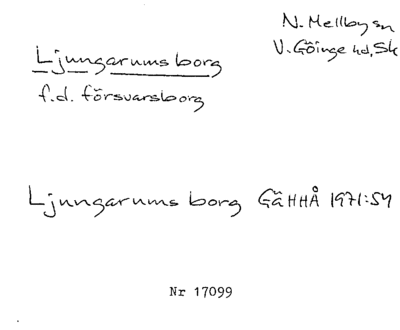 N. Mellby sn
V. Göinge hd, Sk
Ljungarums borg
f.d. försvarsborg
Ljungarums borg GÄHHÅ 1971:54
Nr 17099